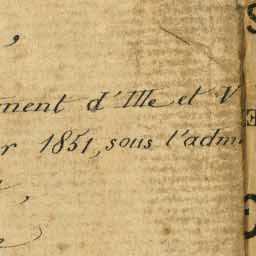 ment d'Ille et V
r 1851, sous l'adm